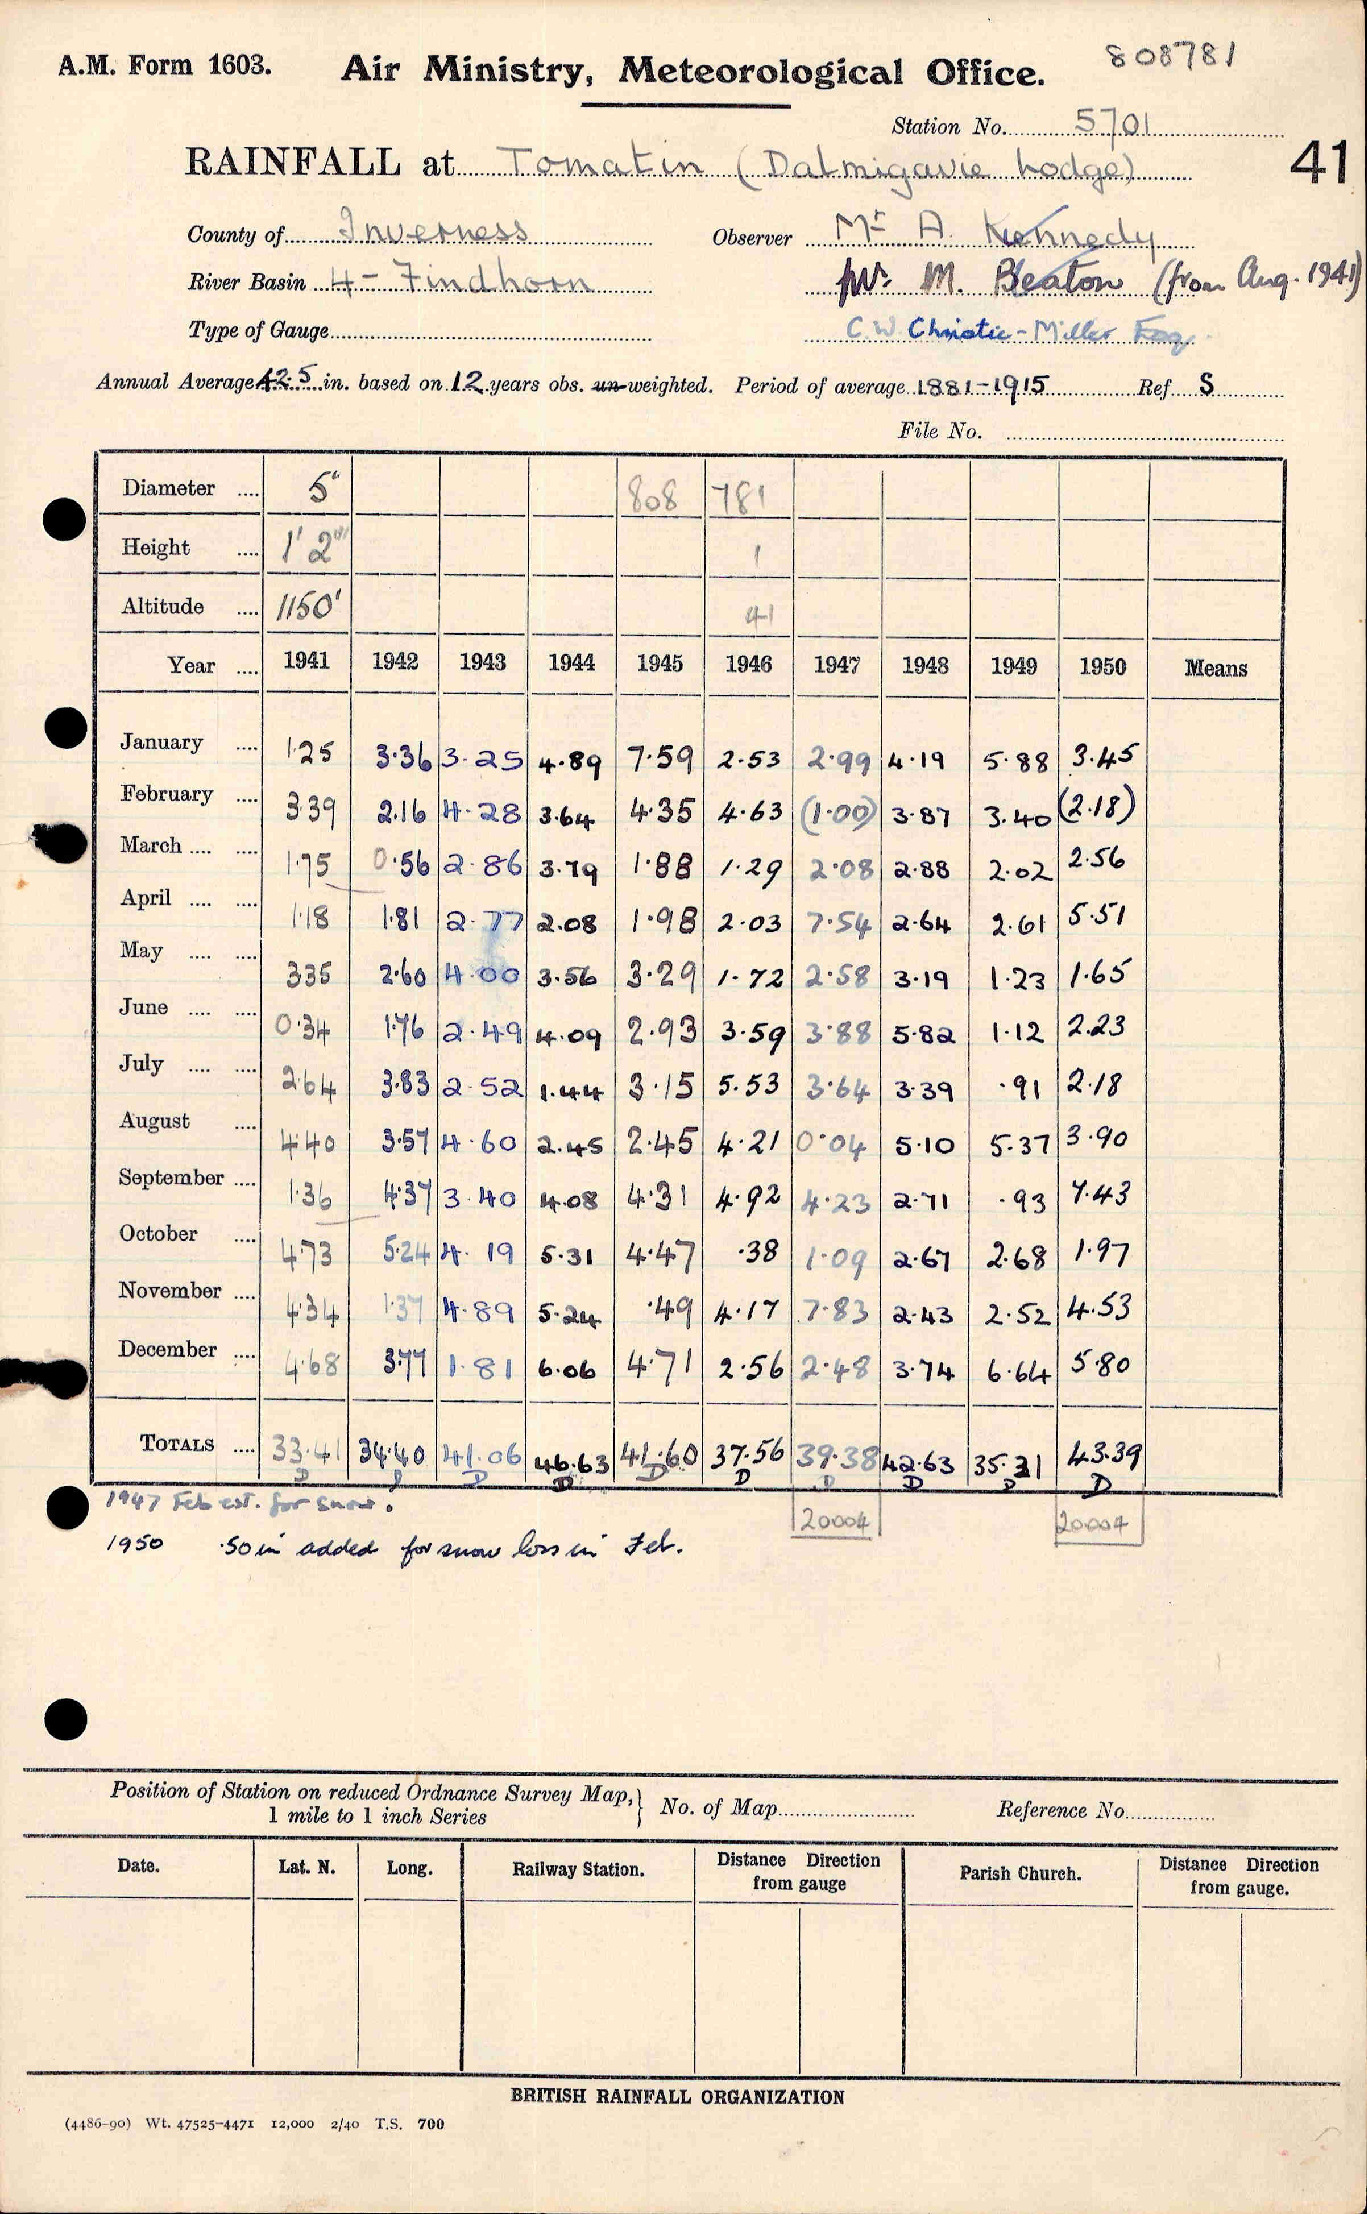 A.M. Form 1603. Air Ministry, Meteorological Office. 808781
Station No. 5701
RAINFALL at Tomatin (Dalmigavie Lodge) 41
County of Inverness Observer Mr A. Kennedy
River Basin 4 - Findhorn Mr. M. Beaton (from Aug. 1941)
Type of Gauge C.W. Christie-Miller Esq.
Annual Average 42.5 in. based on 12 years obs. un-weighted. Period of average 1881-1915 Ref. S
File No.
Diameter .... 5" 808 781
Height .... 1' 2" 1
Altitude .... 1150' 41
Year .... 1941 1942 1943 1944 1945 1946 1947 1948 1949 1950 Means
January .... 1.25 3.36 3.25 4.89 7.59 2.53 2.99 4.19 5.88 3.45
February .... 3.39 2.16 4.28 3.64 4.35 4.63 (1.00) 3.87 3.40 (2.18)
March .... .... 1.75 0.56 2.86 3.79 1.88 1.29 2.08 2.88 2.02 2.56
April .... .... 1.18 1.81 2.77 2.08 1.98 2.03 7.54 2.64 2.61 5.51
May .... .... 3.35 2.60 4.00 3.56 3.29 1.72 2.58 3.19 1.23 1.65
June .... .... 0.34 1.76 2.49 4.09 2.93 3.59 3.88 5.82 1.12 2.23
July .... .... 2.64 3.83 2.52 1.44 3.15 5.53 3.64 3.39 .91 2.18
August .... 4.40 3.57 4.60 2.45 2.45 4.21 0.04 5.10 5.37 3.90
September .... 1.36 4.37 3.40 4.08 4.31 4.92 4.23 2.71 .93 7.43
October .... 4.73 5.24 4.19 5.31 4.47 .38 1.09 2.67 2.68 1.97
November .... 4.34 1.37 4.89 5.24 .49 4.17 7.83 2.43 2.52 4.53
December .... 4.68 3.77 1.81 6.06 4.71 2.56 2.48 3.74 6.64 5.80
TOTALS .... 33.41 34.40 41.06 46.63 41.60 37.56 39.38 42.63 35.31 43.39
D D D D D D D D D
1947 Feb est. for snow.
20004 20004
1950 .50 in added for snow loss in Feb.
Position of Station on reduced Ordnance Survey Map, 1 mile to 1 inch Series } No. of Map Reference No.
Date. Lat. N. Long. Railway Station. Distance Direction from gauge Parish Church. Distance Direction from gauge.
BRITISH RAINFALL ORGANIZATION
(4486-90) Wt. 47525-4471 12,000 2/40 T.S. 700